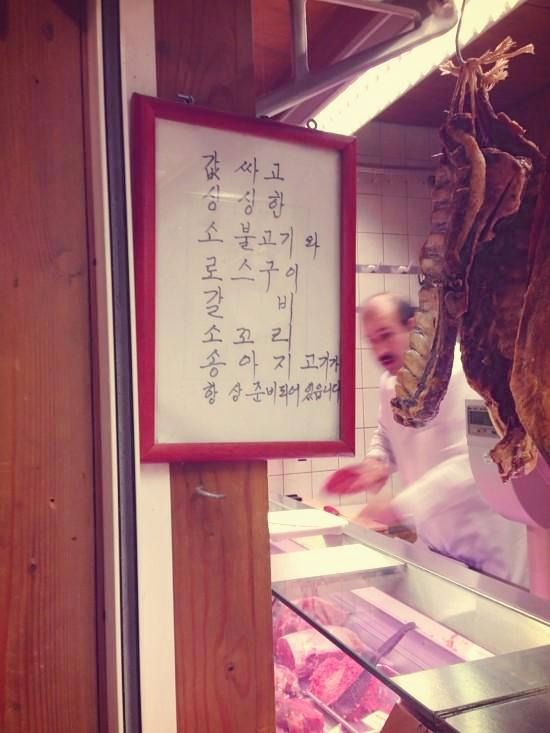 값 싸고
싱싱한
소 불고기 와
로스구이
갈 비
소꼬리
송아지 고기가
항상 준비되어 있읍니다